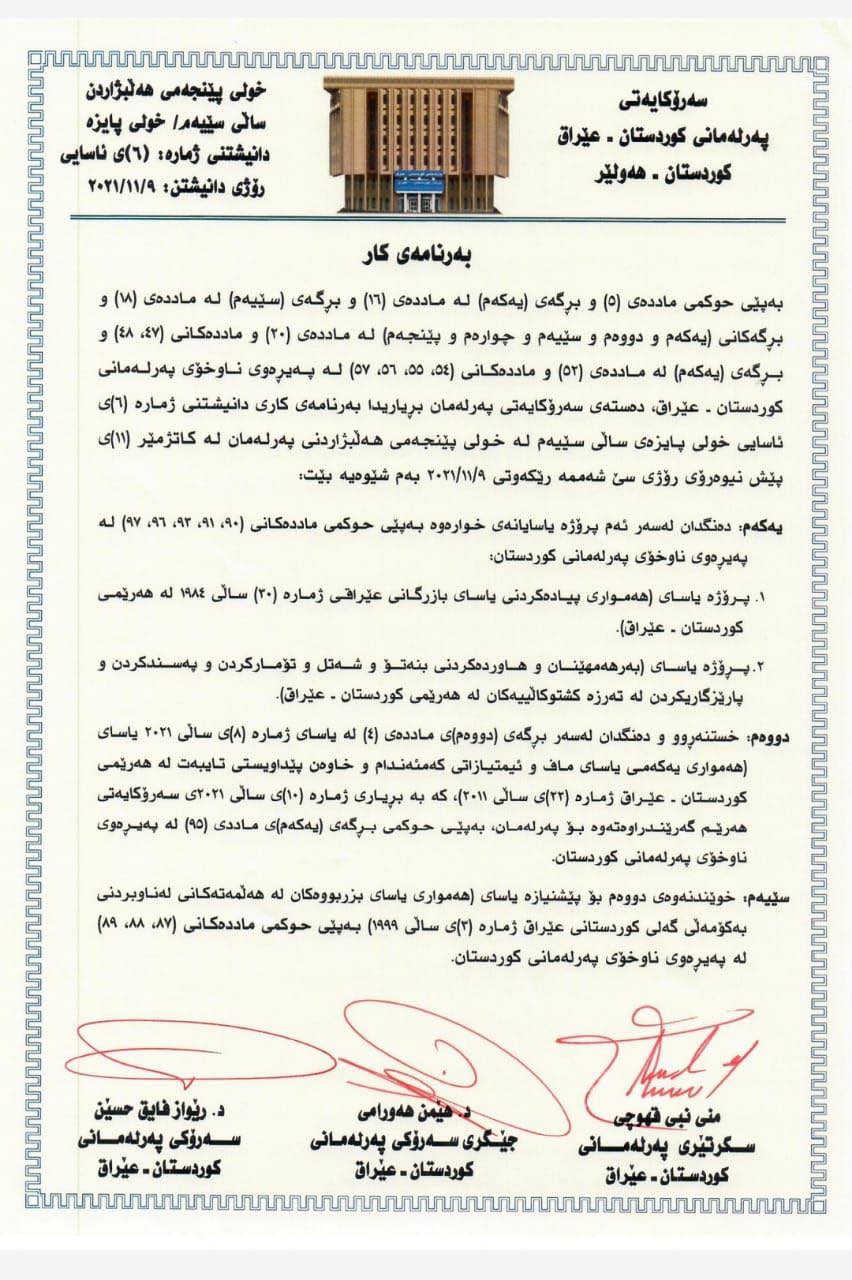 سەرۆکایەتی
پەرلەمانی کوردستان ـ عێراق
کوردستان ـ هەولێر
خولی پێنجەمی هەڵبژاردن
ساڵی سێیەم/ خولی پایزە
دانیشتنی ژمارە: (٦)ی ئاسایی
رۆژی دانیشتن: ٢٠٢١/١١/٩
بەرنامەی کار
بەپێی حوکمی ماددەی (٥) و برگەی (یەکەم) لە ماددەی (١٦) و برگەی (سێیەم) لە ماددەی (١٨) و
برگەکانی (یەکەم و دووەم و سێیەم و چوارەم و پێنجەم) لە ماددەی (٢٠) و ماددەکانی (٤٧، ٤٨) و
برگەی (یەکەم) لە ماددەی (٥٢) و ماددەکانی (٥٤، ٥٥، ٥٦، ٥٧) لە پەیرەوی ناوخۆی پەرلەمانی
کوردستان ـ عێراق، دەستەی سەرۆکایەتی پەرلەمان بریاریدا بەرنامەی کاری دانیشتنی ژمارە (٦)ی
ئاسایی خولی پایزەی ساڵی سێیەم لە خولی پێنجەمی هەڵبژاردنی پەرلەمان لە کاتژمێر (١١)ی
پێش نیوەرۆی رۆژی سێ شەممە رێکەوتی ٢٠٢١/١١/٩ بەم شێوەیە بێت:
یەکەم: دەنگدان لەسەر ئەم پرۆژە یاسایانەی خوارەوە بەپێی حوکمی ماددەکانی (٩٠، ٩١، ٩٣، ٩٦، ٩٧) لە
پەیرەوی ناوخۆی پەرلەمانی کوردستان:
١. پرۆژە یاسای (هەمواری پیادەکردنی یاسای بازرگانی عێراقی ژمارە (٣٠) ساڵی ١٩٨٤ لە هەرێمی
کوردستان ـ عێراق).
٢. پرۆژە یاسای (بەرهەمهێنان و هاوردەکردنی بنەتۆ و شەتل و تۆمارکردن و پەسندکردن و
پارێزگاریکردن لە تەرزە کشتوکاڵییەکان لە هەرێمی کوردستان ـ عێراق).
دووەم: خستنەروو و دەنگدان لەسەر برگەی (دووەم)ی ماددەی (٤) لە یاسای ژمارە (٨)ی ساڵی ٢٠٢١ یاسای
(هەمواری یەکەمی یاسای ماف و ئیمتیازاتی کەمئەندام و خاوەن پێداویستی تایبەت لە هەرێمی
کوردستان ـ عێراق ژمارە (٢٢)ی ساڵی ٢٠١١)، کە بە بریاری ژمارە (١٠)ی ساڵی ٢٠٢١ی سەرۆکایەتی
هەرێم گەرێندراوەتەوە بۆ پەرلەمان، بەپێی حوکمی برگەی (یەکەم)ی ماددی (٩٥) لە پەیرەوی
ناوخۆی پەرلەمانی کوردستان.
سێیەم: خوێندنەوەی دووەم بۆ پێشنیازە یاسای (هەمواری یاسای بزربووەکان لە هەڵمەتەکانی لەناوبردنی
بەکۆمەڵی گەلی کوردستانی عێراق ژمارە (٣)ی ساڵی ١٩٩٩) بەپێی حوکمی ماددەکانی (٨٧، ٨٨، ٨٩)
لە پەیرەوی ناوخۆی پەرلەمانی کوردستان.
منی نبی قهوچی
سکرتێری پەرلەمانی
کوردستان ـ عێراق
د. هێمن هەورامی
جێگری سەرۆکی پەرلەمانی
کوردستان ـ عێراق
د. رێواز فایق حسێن
سەرۆکی پەرلەمانی
کوردستان ـ عێراق